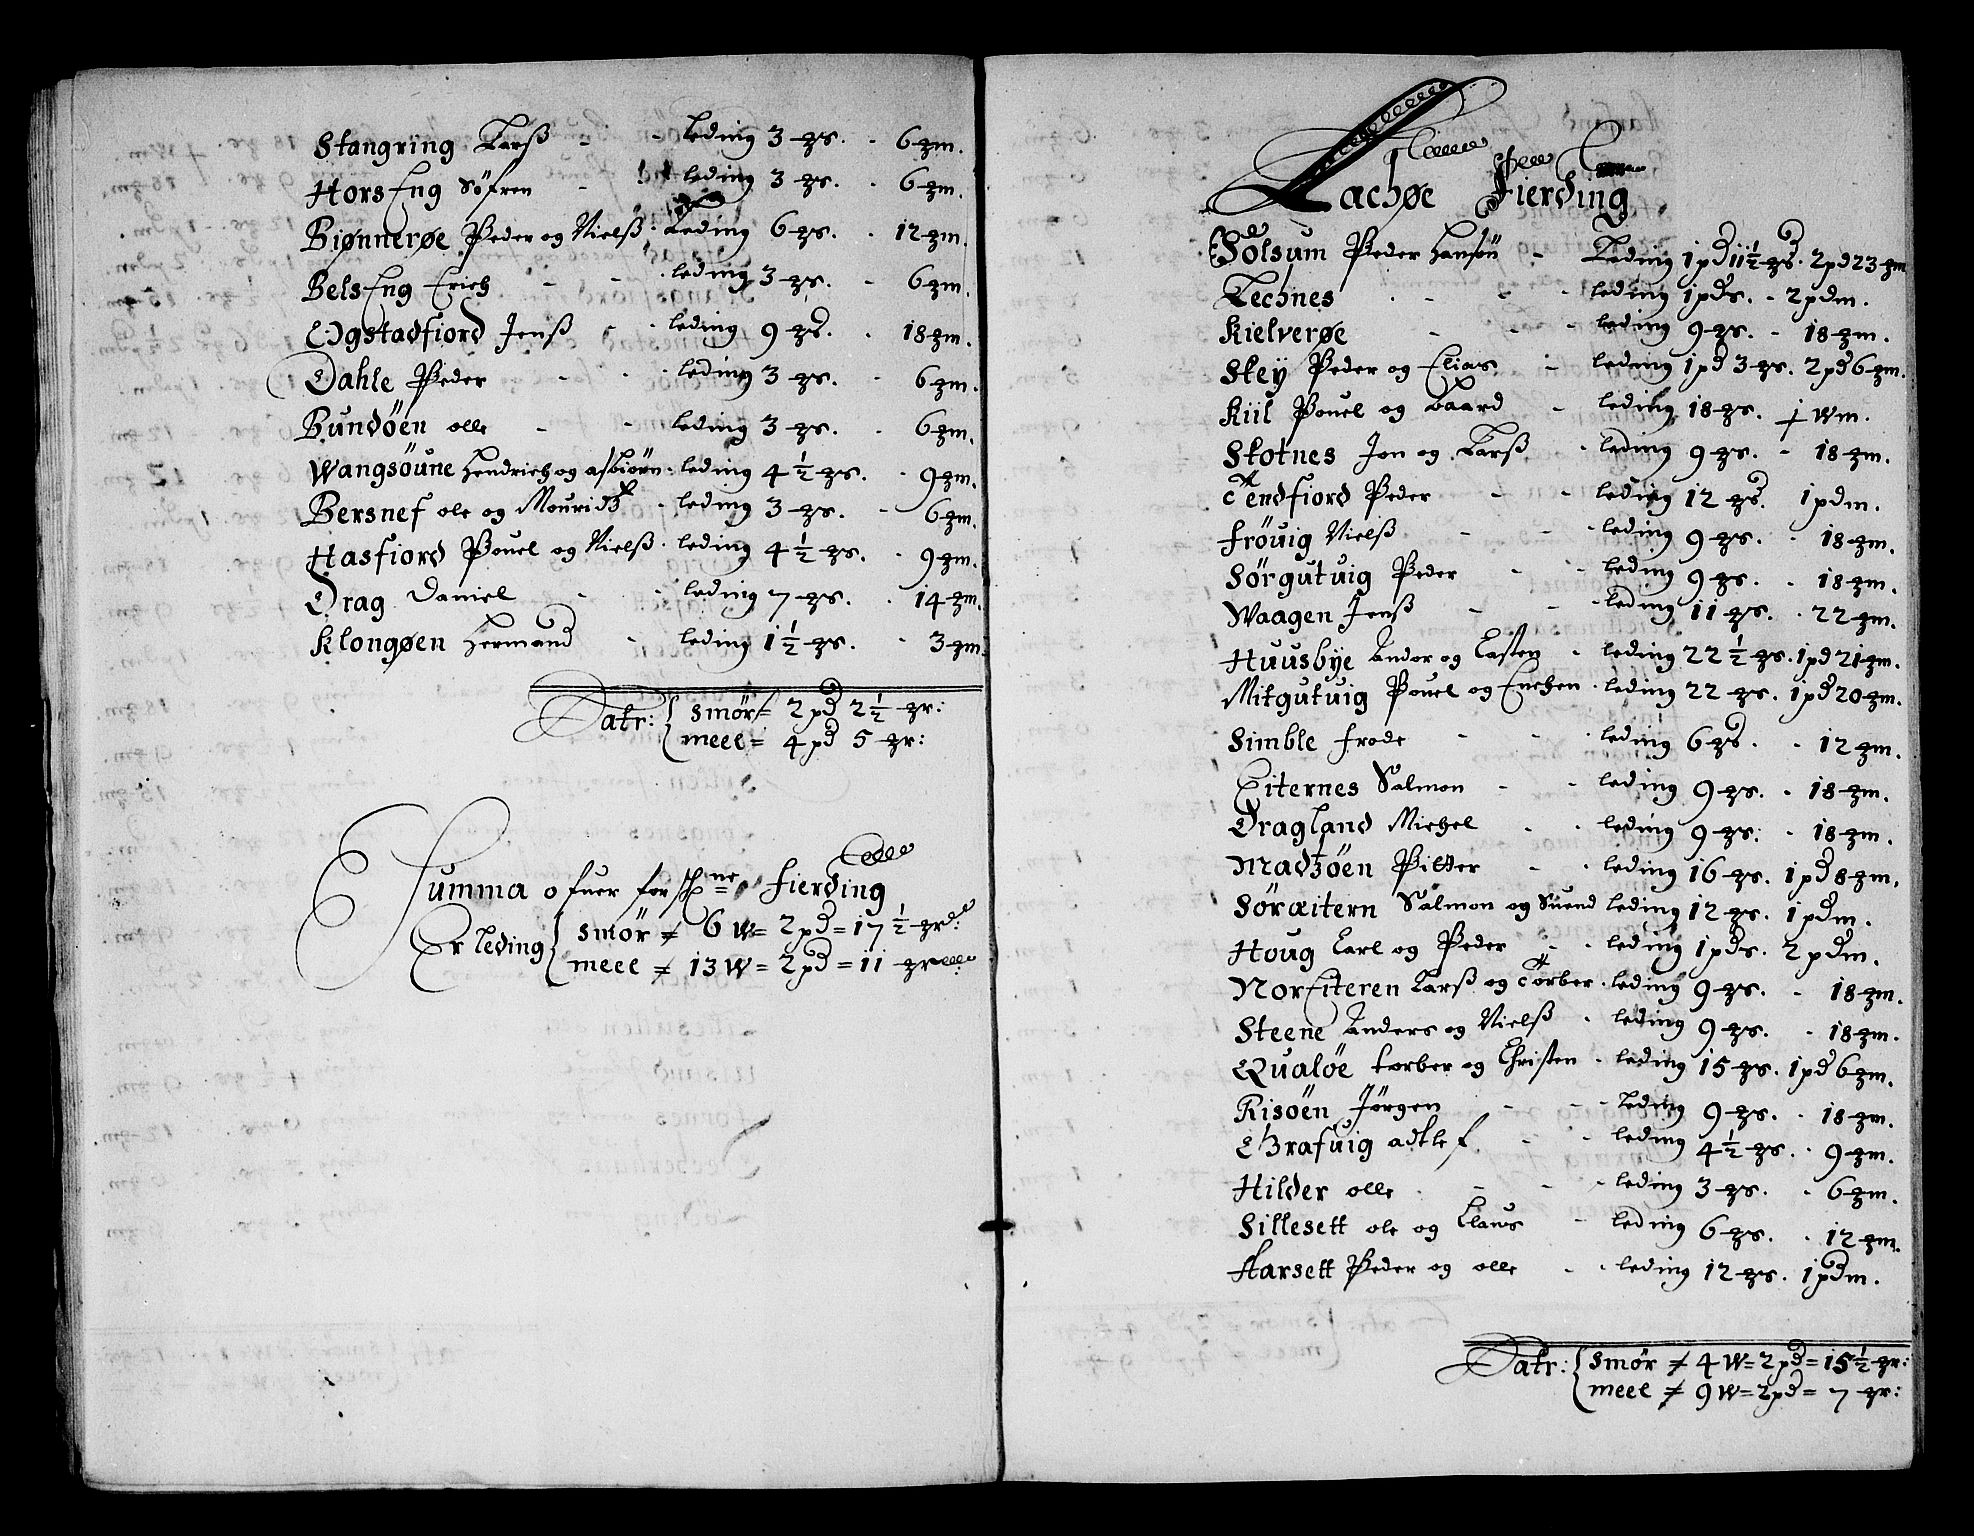 Stangring Larß - - Leding 3 ꝫs. - 6 ꝫm.
HorsEng Söfren - leding 3 ꝫs. - 6 ꝫm.
Biønnerøe Peder og Nielß - Leding 6 ꝫs. - 12 ꝫm.
BelsEng Erich - - leding 3 ꝫs. - 6 ꝫm.
Ogstadfiord Jenß - - leding 9 ꝫs. - 18 ꝫm.
Dahle Peder - - leding 3 ꝫs. - 6 ꝫm.
Bundöen olle - - leding 3 ꝫs. - 6 ꝫm.
Wangsöune Hendrich og asbiørn - leding 4 ½ ꝫs. - 9 ꝫm.
Bersnef ole og Mouridꝫ - leding 3 ꝫs. - 6 ꝫm.
Hasfiord Pouel og Nielß - leding 4 ½ ꝫs. - 9 ꝫm.
Drag Daniel - - leding 7 ꝫs. - 14 ꝫm.
Klongøen Hermand - leding 1 ½ ꝫs. - 3 ꝫm.
Latr: { smør = 2 pd 2 ½ ꝫr:
meel = 4 pd 5 ꝫr:
Summa ofuer forschne fierding
Er leding { smör = 6 W = 2 pd = 17 ½ ꝫr:
meel = 13 W = 2 pd = 11 ꝫr
Lachøe Fierding
Solsum Peder Hansön - Leding 1 pd 11 ½ ꝫs. 2 pd 23 ꝫm
Technes - - leding 1 pds. - 2 pdm.
Kielverøe - - leding 9 ꝫs. - 18 ꝫm.
Skey Peder og Elias - leding 1 pd 3 ꝫs. 2 pd 6 ꝫm.
Kiil Pouel og Baard - leding 18 ꝫs. j Wm.
Skotnes Jon og Larß - leding 9 ꝫs. - 18 ꝫm.
Tendfiord Peder - - leding 12 ꝫs. 1 pdm.
Fröuig Nielß - - leding 9 ꝫs. - 18 ꝫm.
Sörgutuig Peder - - leding 9 ꝫs. - 18 ꝫm.
Waagen Jenß - - leding 11 ꝫs. - 22 ꝫm.
Huusbye Andor og Casten - leding 22 ½ ꝫs. 1 pd 21 ꝫm.
Mitgutuig Pouel og Enchen - leding 22 ꝫs. 1 pd 20 ꝫm.
Simble Frode - - leding 6 ꝫs. - 12 ꝫm.
Eiternes Salmon - - leding 9 ꝫs. - 18 ꝫm.
Dragland Michel - - leding 9 ꝫs: - 18 ꝫm.
Madꝫöen Pitter - - leding 16 ꝫs. 1 pd 8 ꝫm.
Söræitern Salmon og Suend leding 12 ꝫs. 1 pdm.
Houg Carl og Peder - - leding 1 pds. 2 pdm.
NorEiteren Larß og Torber - leding 9 ꝫs. - 18 ꝫm.
Steene Anders og Nielß - leding 9 ꝫs. - 18 ꝫm.
Qualöe torber og Christen - leding 15 ꝫs. 1 pd 6 ꝫm.
Risöen Jörgen - - Leding 9 ꝫs. - 18 ꝫm.
Grafuig adtlef - - leding 4 ½ ꝫs. - 9 ꝫm.
Hilder olle - - leding 3 ꝫs. - 6 ꝫm.
Sillesett ole og Claus - leding 6 ꝫs. - 12 ꝫm.
Harsett Peder og olle - - leding 12 ꝫs. 1 pdm.
Latr: { smør = 4 W = 2 pd = 15 ½ ꝫr:
meel = 9 W = 2 pd = 7 ꝫr: